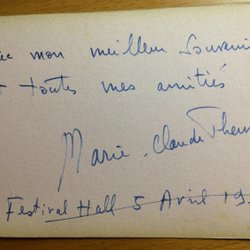 mon meilleur Souvenir
toutes mes amitiés
Marie-Claude
Festival Hall 5 Avril 19